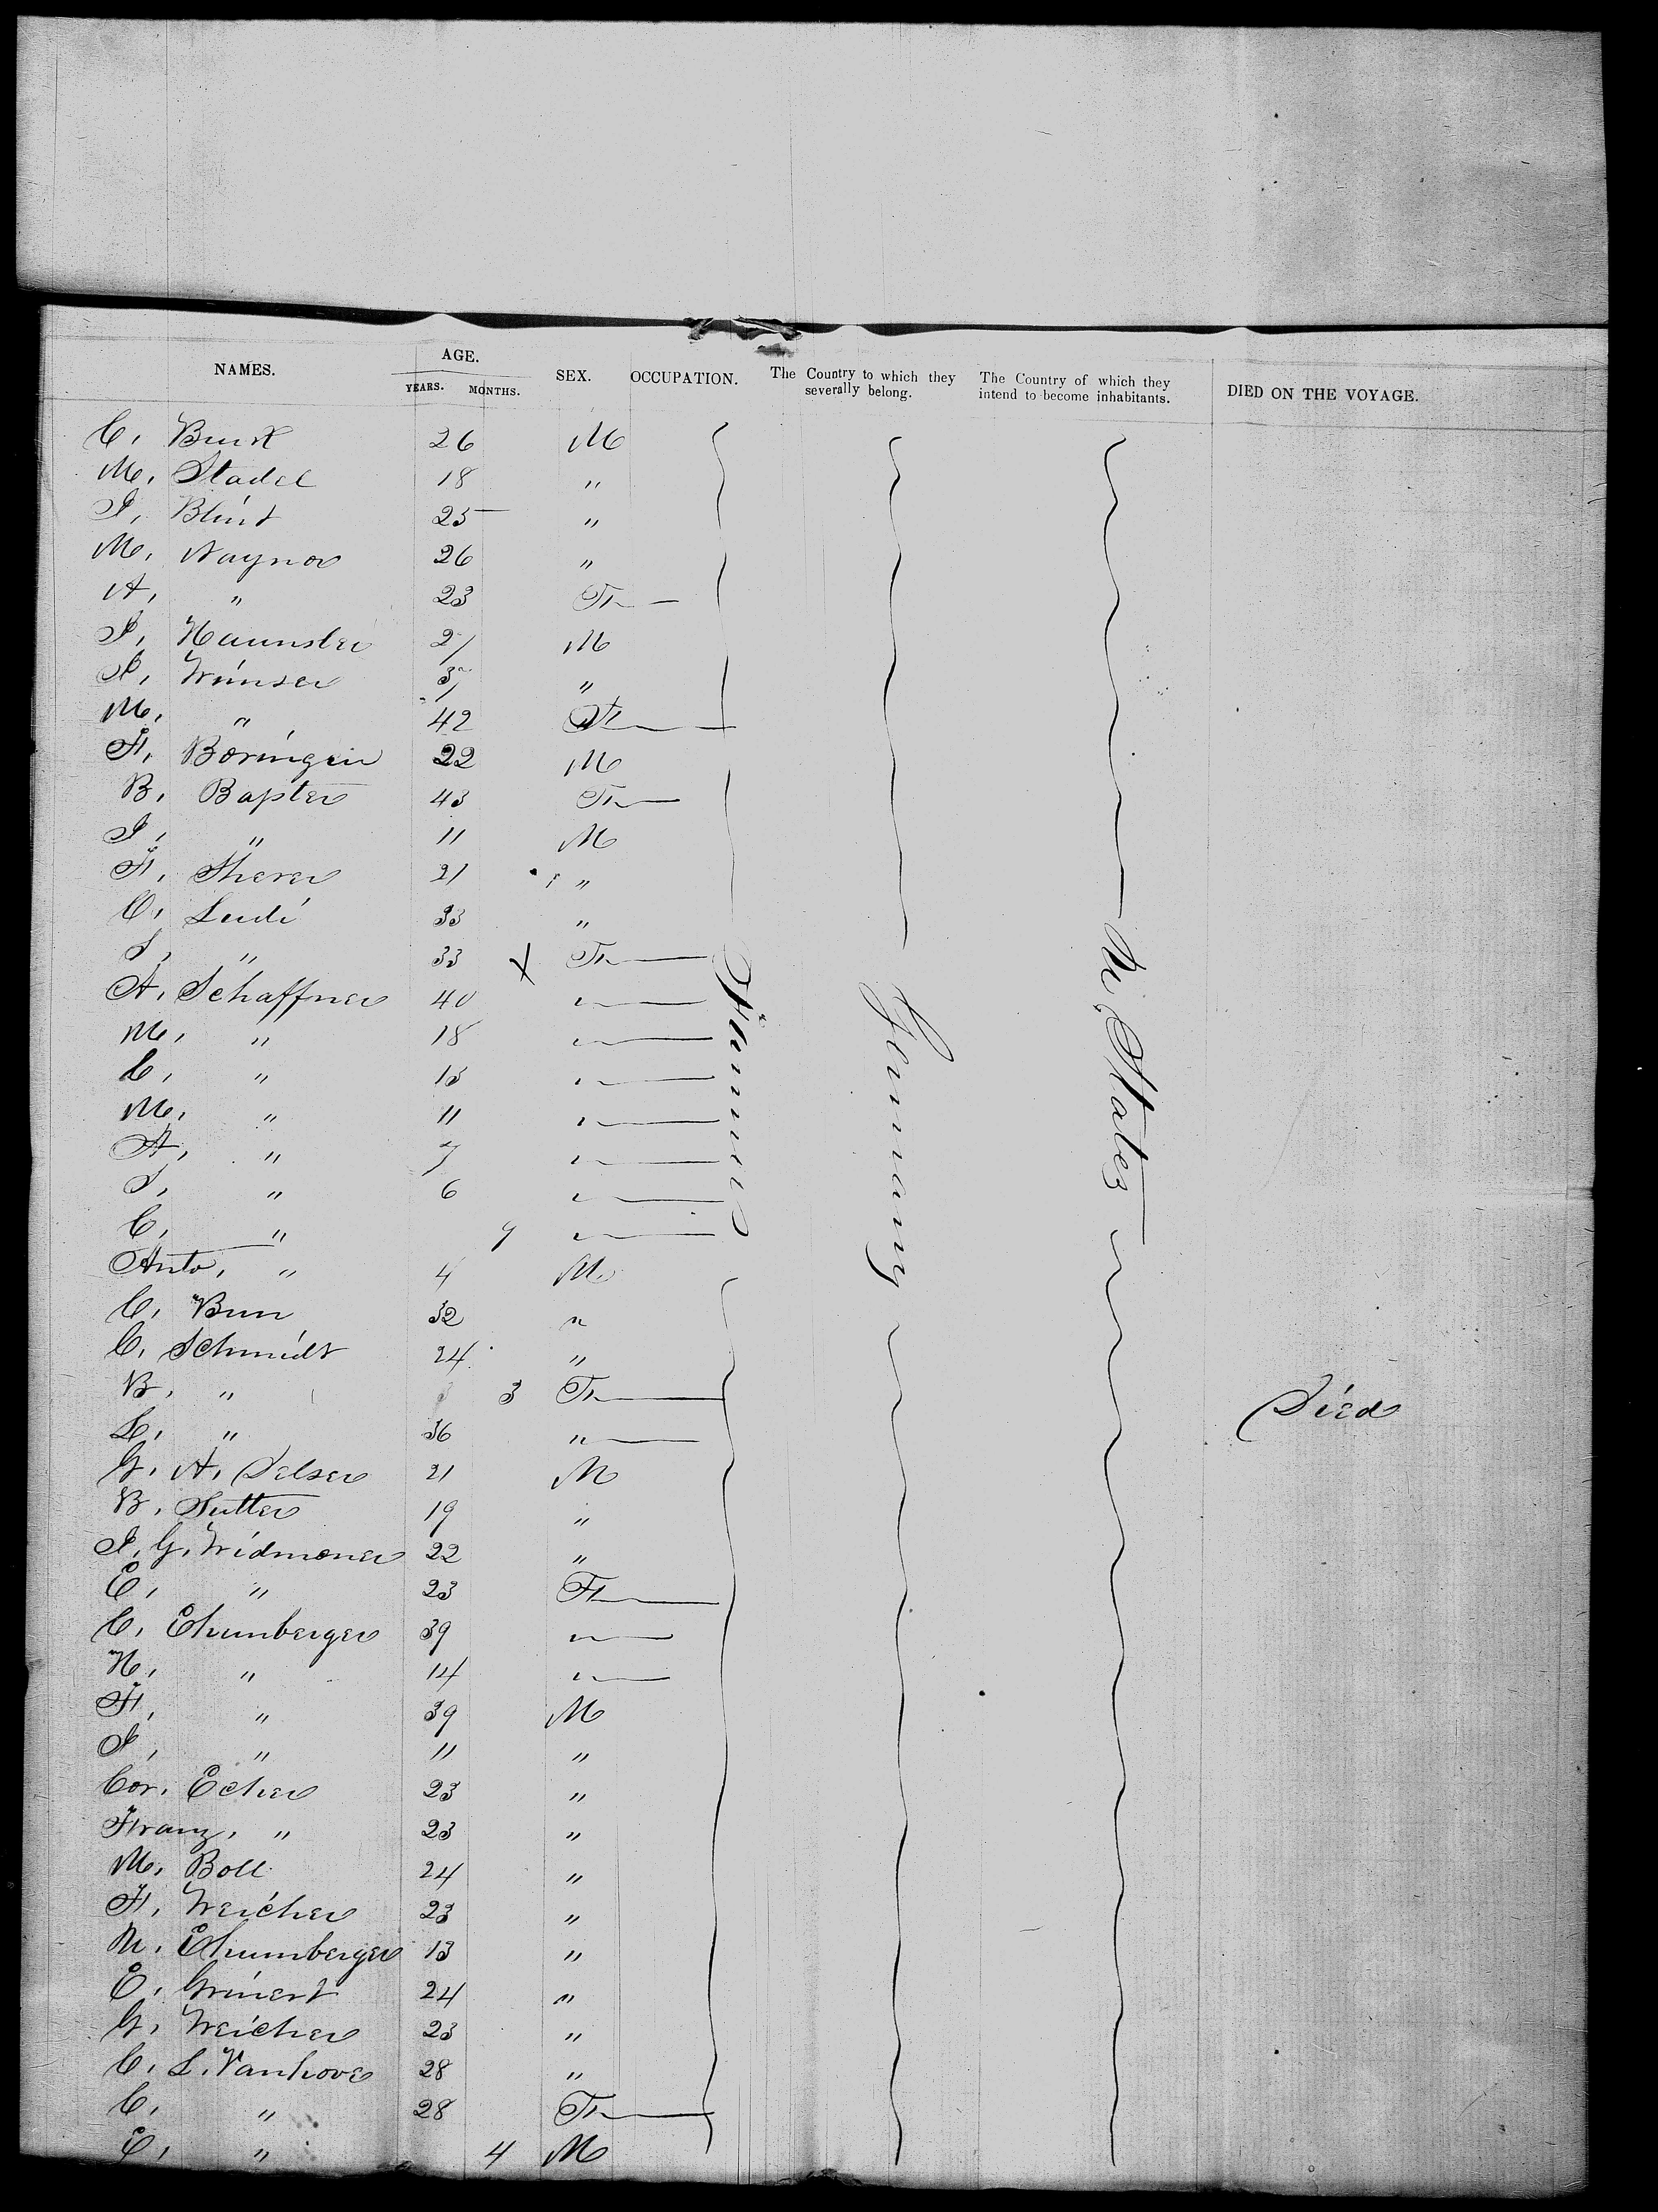 NAMES. AGE. YEARS. MONTHS. SEX. OCCUPATION. The Country to which they severally belong. The Country of which they intend to become inhabitants. DIED ON THE VOYAGE.
C, Burk 26 M
M, Stadel 18 "
J, Blint 25 "
M, Naynor 26 "
A, " 23 F
J, 27 M
J, 37 "
M, " 42 F
F, Boringer 22 M
B, Bapter 43 F
J, " 11 M
F, Sherer 21 "
C, Ludi 33 "
S, " 33 F
A, Schaffner 40 "
M, " 18 "
C, " 13 "
M, " 11 "
A, " 7 "
S, " 6 "
C, " 9 "
Anto, " 4 M
C, Bun 32 "
C, Schmidt 24 "
B, " 3 F Died
L, " 36 "
G, A, Delser 21 M
B, Sutter 19 "
J, G, Widmoner 22 "
E, " 23 F
C, Ehumberger 39 "
H, " 14 "
F, " 39 M
J, " 11 "
Cor, Echer 23 "
Franz, " 23 "
M, Boll 24 "
F, Weicher 23 "
N, Ehumberger 13 "
E, Grinert 24 "
G, Weicher 23 "
C, L, Vanhove 28 "
C, " 28 F
E, " 4 M
Farmer
Germany
U, States